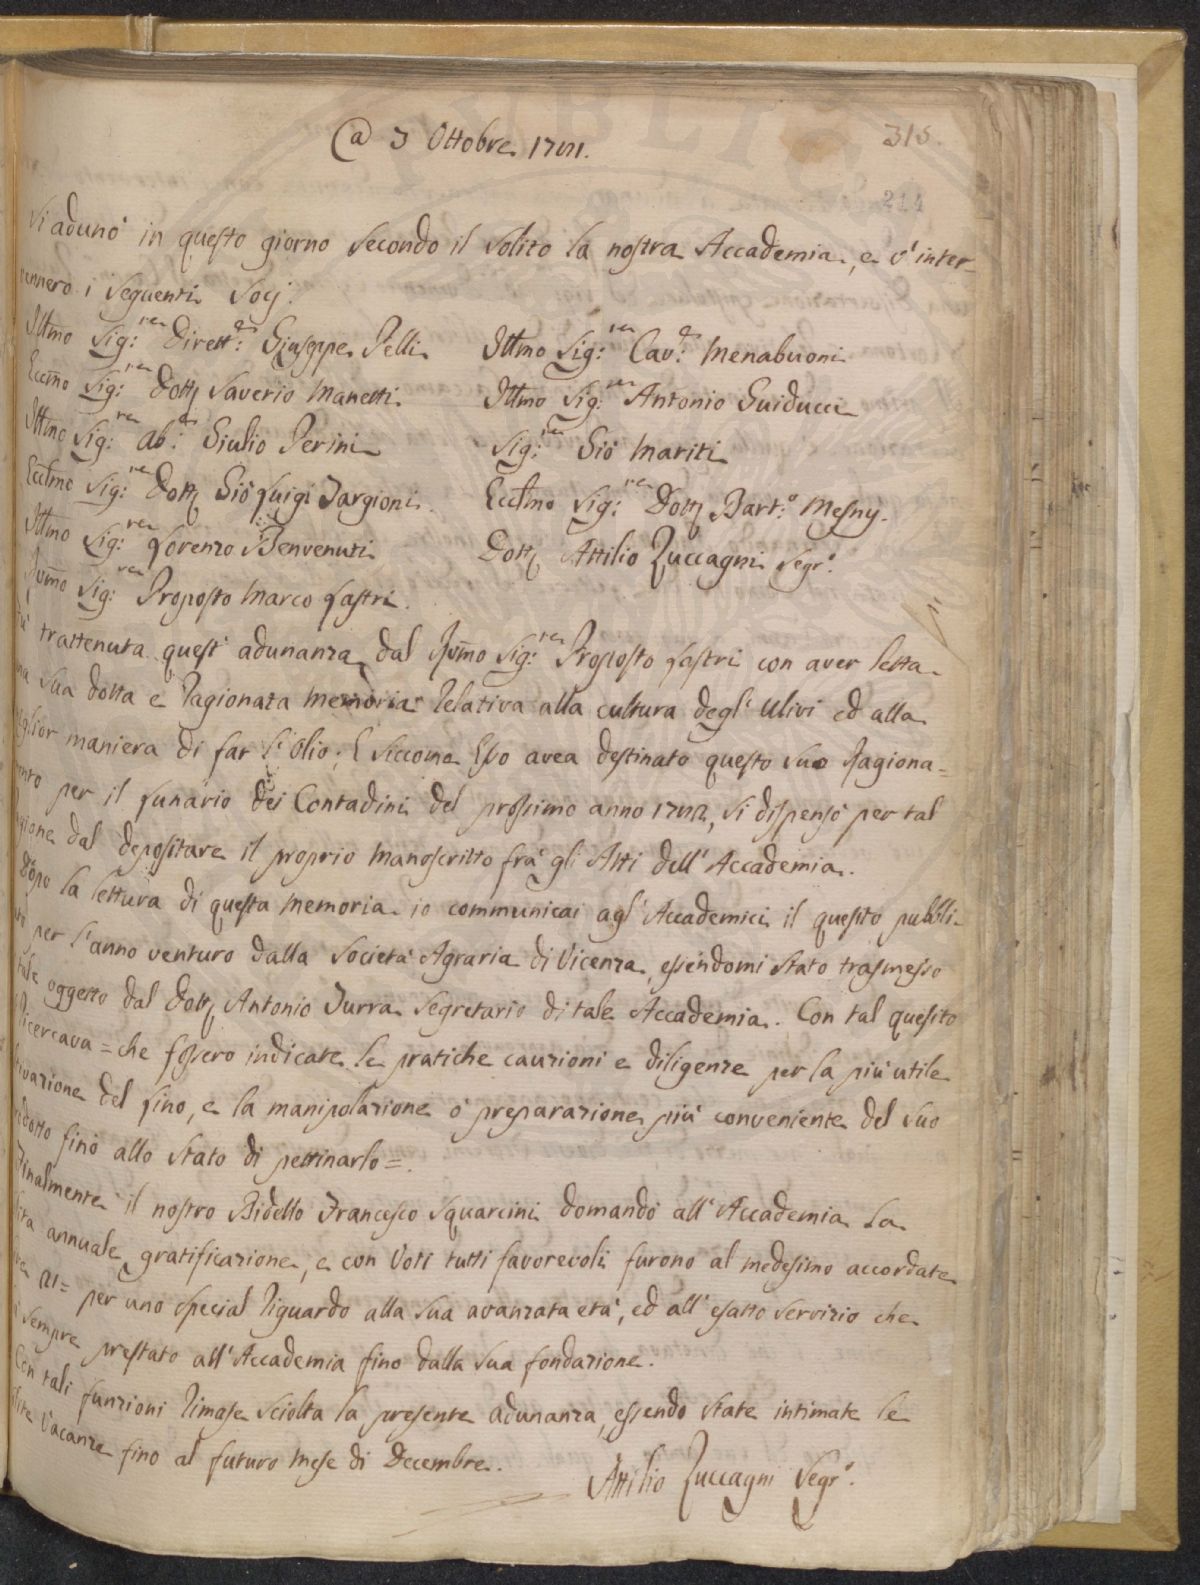 @ 3 Ottobre 1781.
315.
214
Si adunò in questo giorno secondo il solito la nostra Accademia, e v'inter-
vennero i seguenti Socj.
Illmo Sig:re Dirett:e Giuseppe Pelli
Illmo Sig:re Cav:e Menabuoni
Eccmo Sig:re Dott Saverio Manetti.
Illmo Sig:re Antonio Guiducci
Illmo Sig:re Ab:e Giulio Perini
Sig:re Gio Mariti
Ecclmo Sig:re Dott Gio Luigi Targioni.
Ecclmo Sig:re Dott Bart:o Mesny.
Illmo Sig:re Lorenzo Benvenuti
Dott Attilio Zuccagni Segr:o
Rvmo Sig:re Proposto Marco Lastri.
trattenuta quest' adunanza dal Rvmo Sig:re Proposto Lastri con aver letta
na sua dotta e ragionata memoria relativa alla cultura degl' Ulivi ed alla
glior maniera di far l'Olio; E siccome Esso avea destinato questo suo Ragiona=
ento per il Lunario dei Contadini del prossimo anno 1782, si dispensò per tal
gione dal depositare il proprio manoscritto frà gli Atti dell'Accademia.
Dopo la lettura di questa memoria io communicai agl' Accademici il quesito pubbli-
per l'anno venturo dalla Società Agraria di Vicenza, essendomi stato trasmesso
tale oggetto dal Dott Antonio Turra Segretario di tale Accademia. Con tal quesito
ricercava = che fossero indicate le pratiche cauzioni e diligenze per la più utile
tivazione del Lino, e la manipolazione o preparazione più conveniente del suo
dotto fino allo stato di pettinarlo =.
Finalmente il nostro Bidello Francesco Squarcini domandò all'Accademia la
lita annuale gratificazione, e con voti tutti favorevoli furono al medesimo accordate
21= per uno special riguardo alla sua avanzata età, ed all'esatto servizio che
sempre prestato all'Accademia fino dalla sua fondazione.
Con tali funzioni rimase sciolta la presente adunanza, essendo state intimate le
lite vacanze fino al futuro mese di Decembre.
Attilio Zuccagni Segr:o
PUBLIC